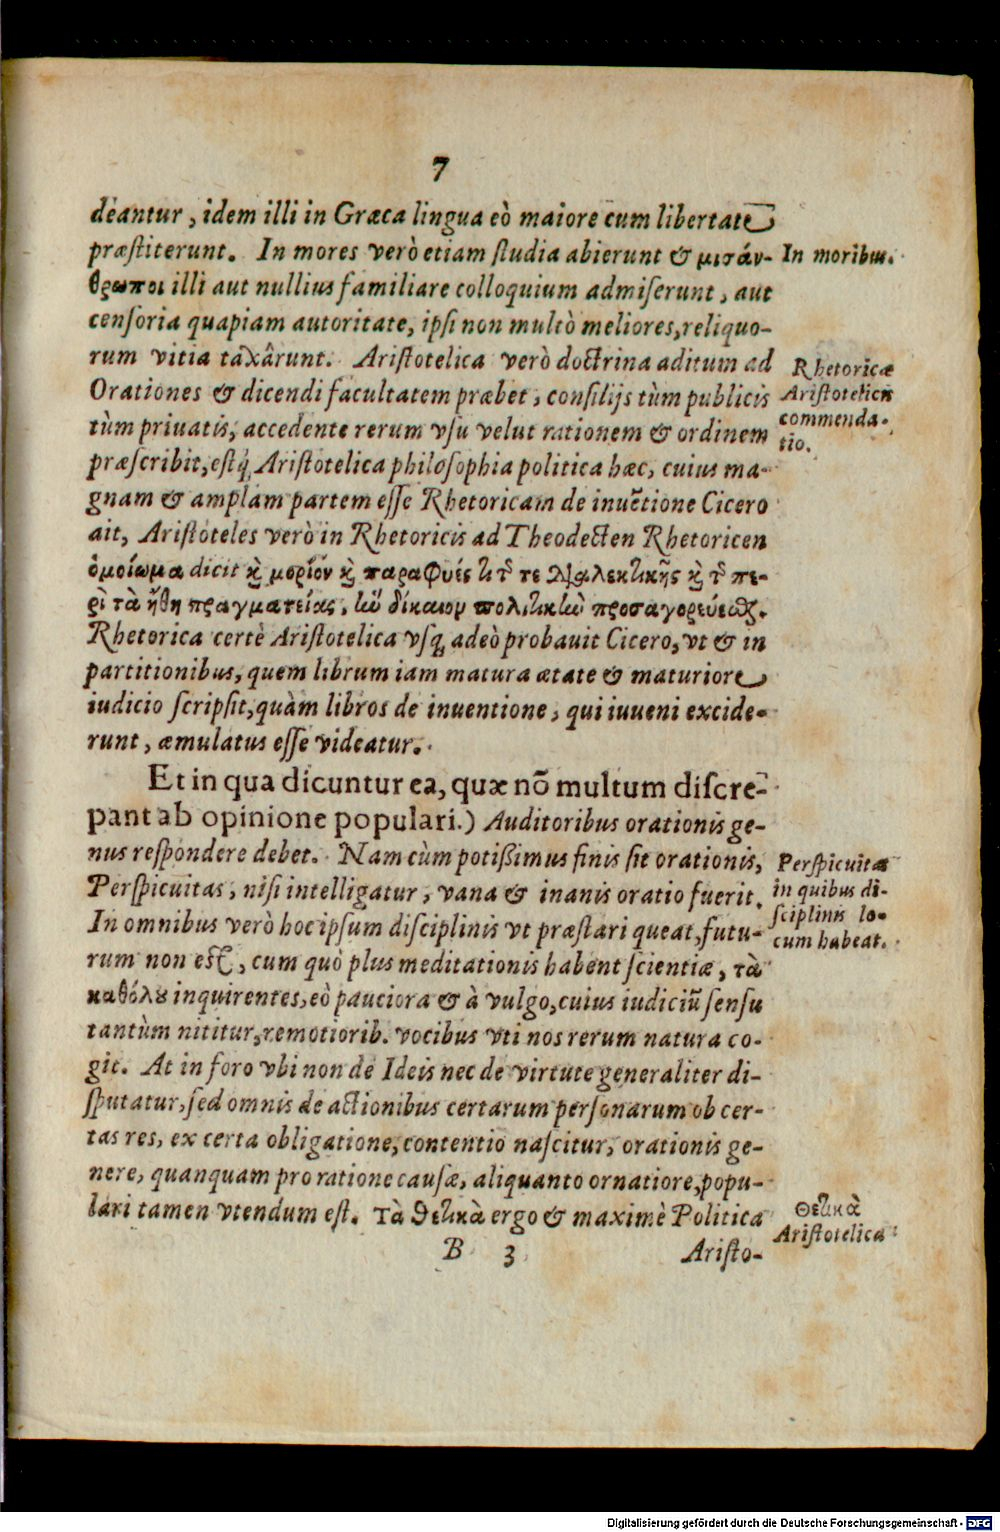 7
deantur, idem illi in Græca lingua eò maiore cum libertate
præſtiterunt. In mores verò etiam ſtudia abierunt & μισάν-
In moribus.
θρωποι illi aut nullius familiare colloquium admiſerunt, aut
cenſoria quapiam autoritate, ipſi non multò meliores, reliquo-
rum vitia taxârunt. Ariſtotelica verò doctrina aditum ad
Orationes & dicendi facultatem præbet, conſilijs tùm publicis
tùm priuatis, accedente rerum vſu velut rationem & ordinem
Rhetoricæ
Ariſtotelicæ
commenda-
tio.
præſcribit, eſtq́ Ariſtotelica philoſophia politica hæc, cuius ma-
gnam & amplam partem eſſe Rhetoricam de inuẽtione Cicero
ait, Ariſtoteles verò in Rhetoricis ad Theodecten Rhetoricen
ὁμοίωμα dicit ϗ̀ μορίον ϗ̀ παραφυές τι τ͂ τε Διαλεκτικῆς ϗ̀ τ͂ πε-
ρὶ τὰ ἤθη πραγματείας, ἣν δίκαιον πολιτικὴν προσαγορεύεσθαι.
Rhetorica certè Ariſtotelica vſq́ adeò probauit Cicero, vt & in
partitionibus, quem librum iam matura ætate & maturiore
iudicio ſcripſit, quàm libros de inuentione, qui iuueni excide-
runt, æmulatus eſſe videatur.
Et in qua dicuntur ea, quæ nõ multum diſcre-
pant ab opinione populari.) Auditoribus orationis ge-
nus reſpondere debet. Nam cùm potißimus finis ſit orationis,
Perſpicuitas, niſi intelligatur, vana & inanis oratio fuerit.
In omnibus verò hoc ipſum diſciplinis vt præſtari queat, futu-
Perſpicuitas
in quibus di-
ſciplinis lo-
cum habeat.
rum non eſt, cum quò plus meditationis habent ſcientiæ, τὰ
καθόλȣ inquirentes, eò pauciora & à vulgo, cuius iudiciũ ſenſu
tantùm nititur, remotiorib. vocibus vti nos rerum natura co-
git. At in foro vbi non de Ideis nec de virtute generaliter di-
ſputatur, ſed omnis de actionibus certarum perſonarum ob cer-
tas res, ex certa obligatione, contentio naſcitur, orationis ge-
nere, quanquam pro ratione cauſæ, aliquanto ornatiore, popu-
lari tamen vtendum eſt. Τὰ θετικὰ ergo & maximè Politica
Θετικὰ
Ariſtotelica
B 3
Ariſto-
Digitalisierung gefördert durch die Deutsche Forschungsgemeinschaft - DFG